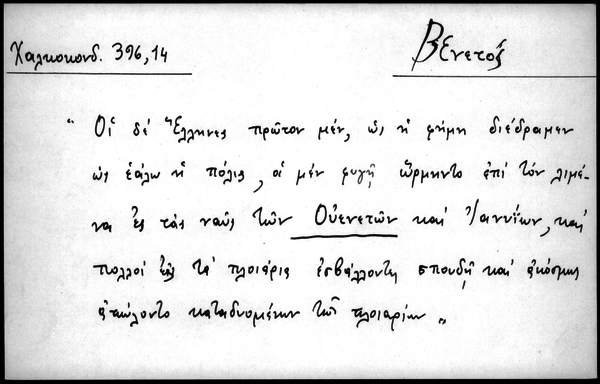 Χαλκοκονδ. 396,14
Βενετός
" Οἱ δέ Ἕλληνες πρῶτον μέν, ὡς ἡ φήμη διέδραμεν
ὡς ἑάλω ἡ πόλις, οἱ μέν φυγῇ ὥρμηντο ἐπί τόν λιμέ-
να ἐς τάς ναῦς τῶν Οὐενετῶν καί Ἰαννυΐων, καί
πολλοί ἐς τά πλοιάρια ἐσβάλλοντες σπουδῇ καί ἀκόσμως
ἀπώλοντο καταδυομένων τῶν πλοιαρίων "